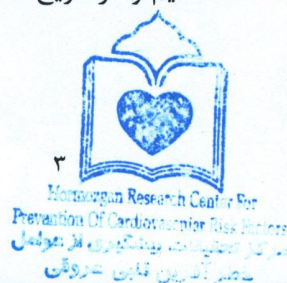 ۳
Hormozgan Research Center For
Prevention Of Cardiovascular Risk Factors
مرکز تحقیقات پیشگیری از عوامل
قلبی عروقی